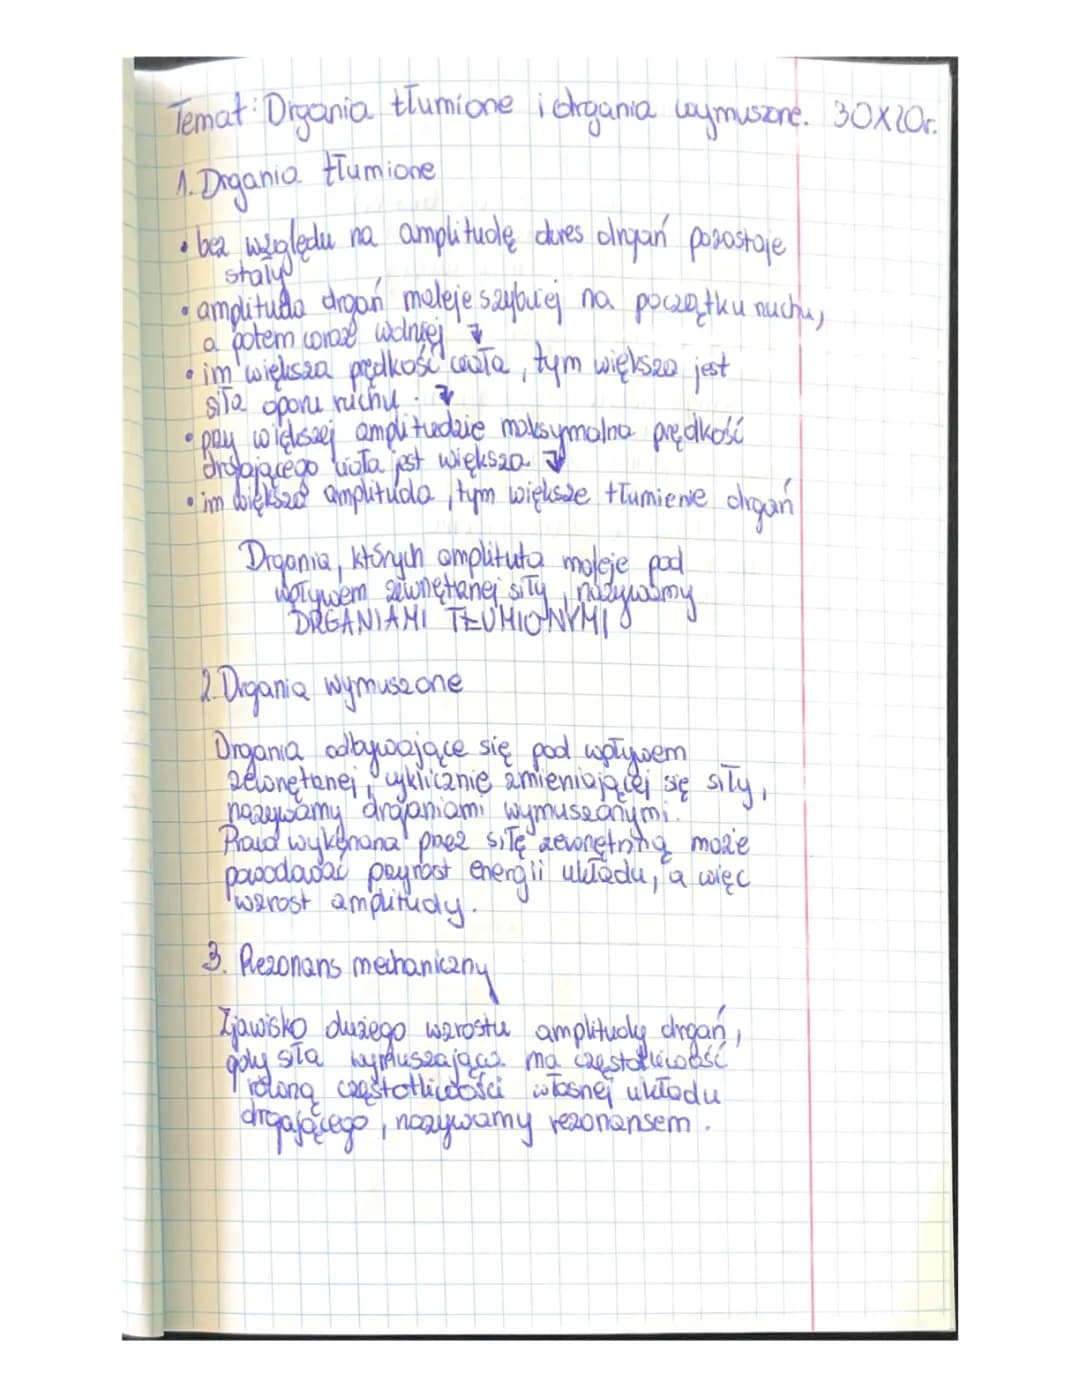 Temat: Drgania tłumione i drgania wymuszone. 30X20r.
1. Drgania tłumione
• bez względu na amplitudę okres drgań pozostaje
stały
• amplituda drgań maleje szybciej na początku ruchu,
a potem coraz wolniej ↓
• im większa prędkość ciała, tym większa jest
siła oporu ruchu. ↓
• przy większej amplitudzie maksymalna prędkość
drgającego ciała jest większa ↓
• im większa amplituda, tym większe tłumienie drgań
Drgania, których amplituta maleje pod
wpływem zewnętrznej siły, nazywamy
DRGANIAMI TŁUMIONYMI
2. Drgania wymuszone
Drgania odbywające się pod wpływem
zewnętrznej, cyklicznie zmieniającej się siły,
nazywamy drganiami wymuszonymi.
Praca wykonana przez siłę zewnętrzną może
powodować przyrost energii układu, a więc
wzrost amplitudy.
3. Rezonans mechaniczny
Zjawisko dużego wzrostu amplitudy drgań,
gdy siła wymuszająca ma częstotliwość
równą częstotliwości własnej układu
drgającego, nazywamy rezonansem.